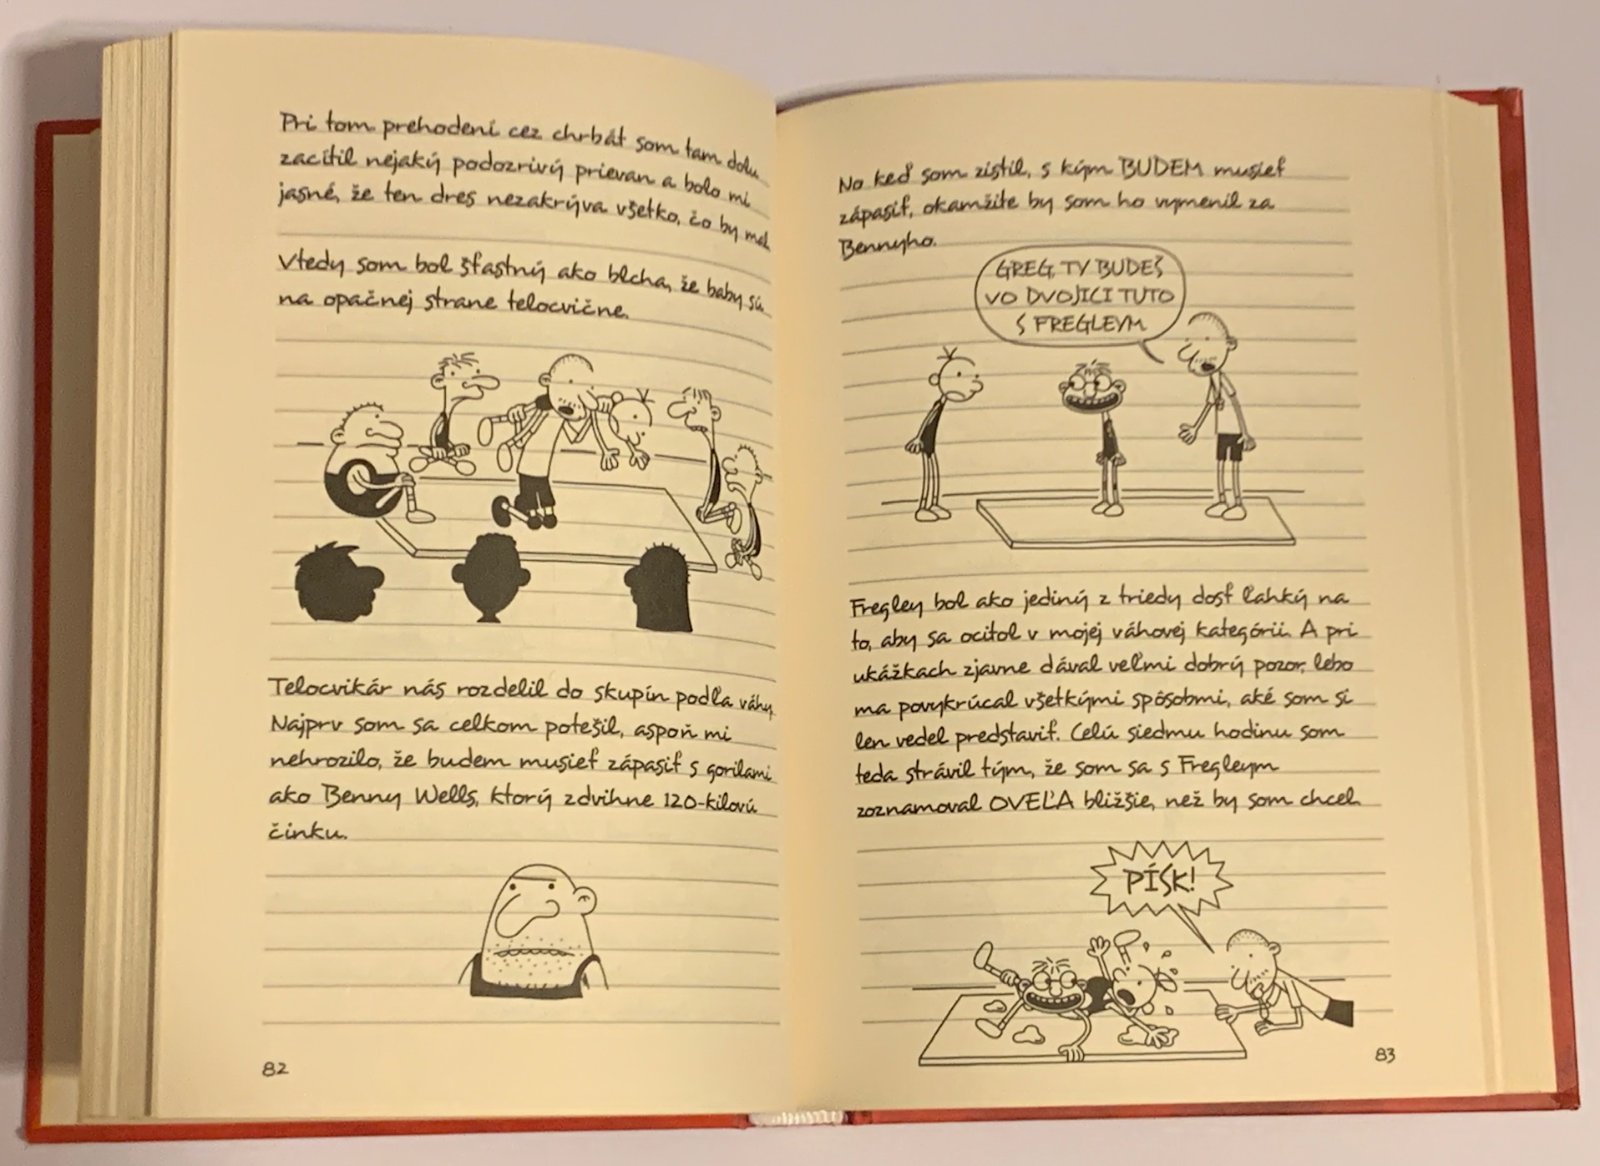 Pri tom prehodení cez chrbát som tam dolu
zacítil nejaký podozrivý prievan a bolo mi
jasné, že ten dres nezakrýva všetko, čo by mal.
Vtedy som bol šťastný ako blcha, že baby sú
na opačnej strane telocvične.
Telocvikár nás rozdelil do skupín podľa váhy.
Najprv som sa celkom potešil, aspoň mi
nehrozilo, že budem musieť zápasiť s gorilami
ako Benny Wells, ktorý zdvihne 120-kilovú
činku.
82
No keď som zistil, s kým BUDEM musieť
zápasiť, okamžite by som ho vymenil za
Bennyho.
GREG, TY BUDEŠ
VO DVOJICI TUTO
S FREGLEYM
Fregley bol ako jediný z triedy dosť ľahký na
to, aby sa ocitol v mojej váhovej kategórii. A pri
ukážkach zjavne dával veľmi dobrý pozor, lebo
ma povykrúcal všetkými spôsobmi, aké som si
len vedel predstaviť. Celú siedmu hodinu som
teda strávil tým, že som sa s Fregleym
zoznamoval OVEĽA bližšie, než by som chcel.
PÍSK!
83